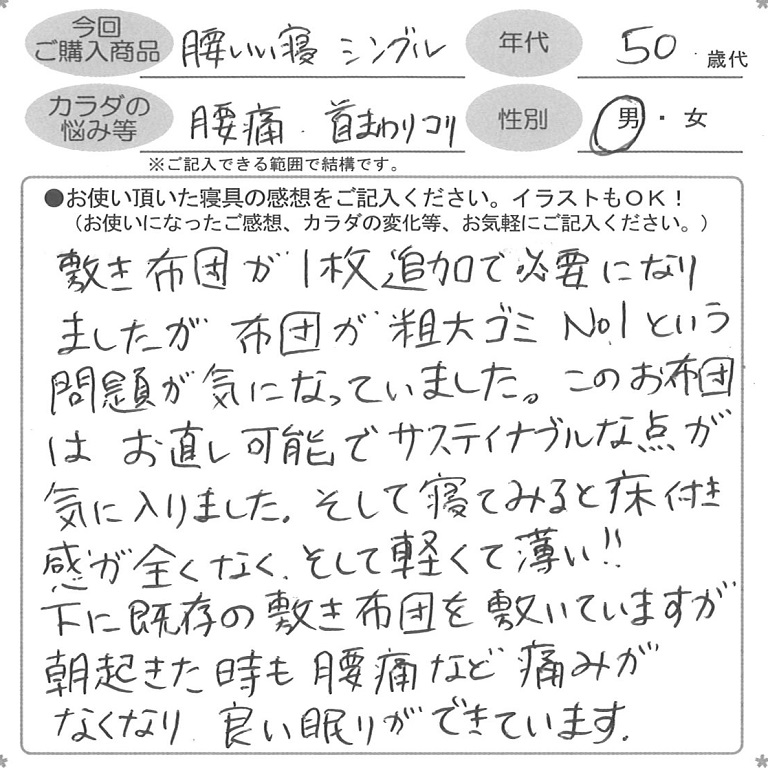 今回
ご購入商品
腰いい寝 シングル
年代
50 歳代
カラダの
悩み等
腰痛・首まわりコリ
性別
男・女
※ご記入できる範囲で結構です。
●お使い頂いた寝具の感想をご記入ください。イラストもOK!
(お使いになったご感想、カラダの変化等、お気軽にご記入ください。)
敷き布団が1枚追加で必要になり
ましたが 布団が粗大ゴミ No.1という
問題が気になっていました。このお布団
は お直し可能でサスティナブルな点が
気に入りました。そして寝てみると床付き
感が全くなく、そして軽くて薄い!!
下に既存の敷き布団を敷いていますが
朝起きた時も腰痛など痛みが
なくなり 良い眠りができています.